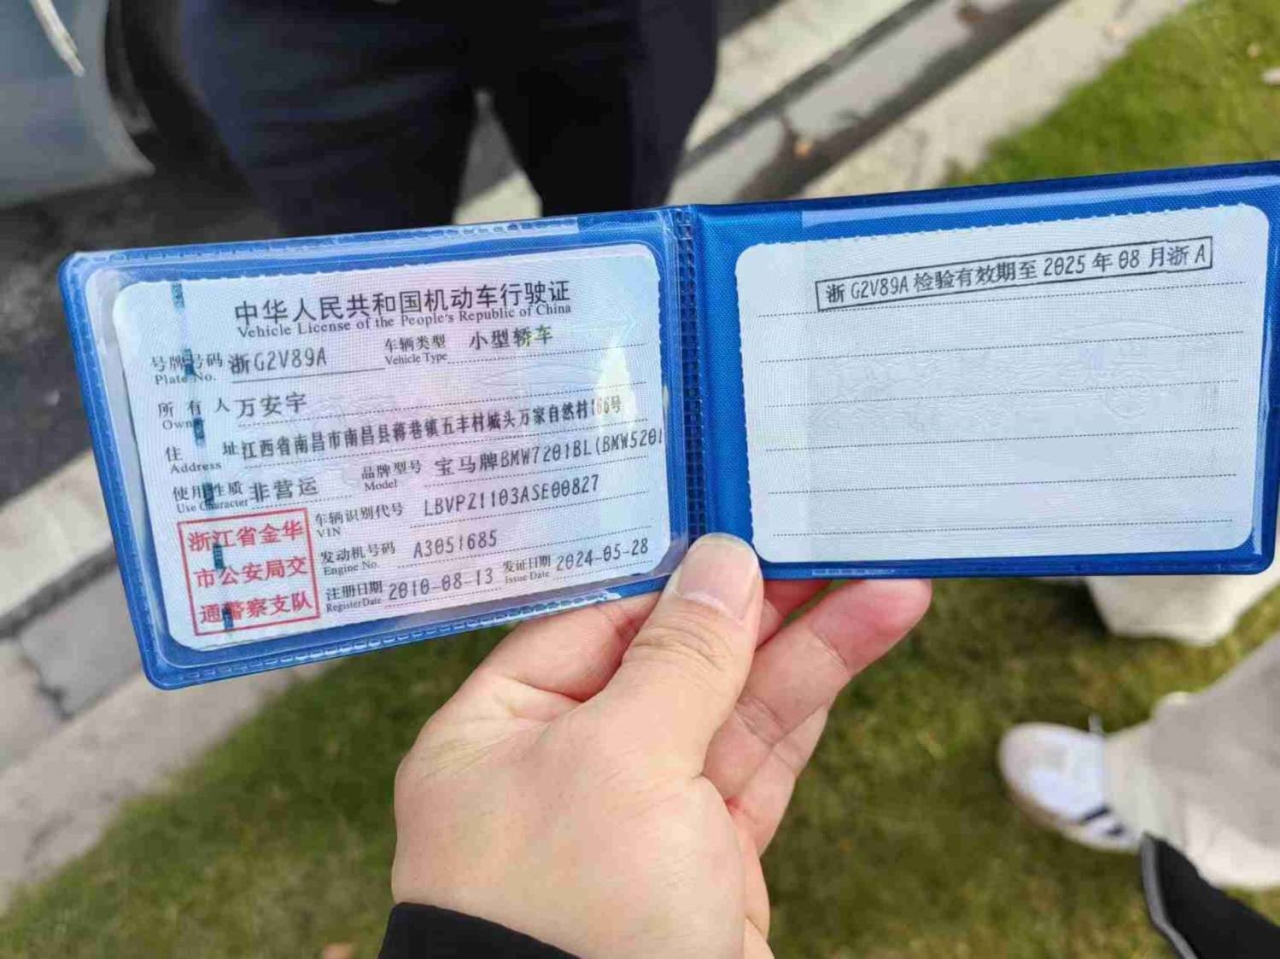 中华人民共和国机动车行驶证
Vehicle License of the People's Republic of China
号牌号码 浙G2V89A 车辆类型 小型轿车
Plate No. Vehicle Type
所有人 万安宇
Owner
住址 江西省南昌市南昌县蒋巷镇五丰村城头万家自然村166号
Address
使用性质 非营运 品牌型号 宝马牌BMW7201BL(BMW5201
Use Character Model
浙江省金华
市公安局交
通警察支队
车辆识别代号 LBVPZ1103ASE00827
VIN
发动机号码 A3051685
Engine No.
注册日期 2010-08-13 发证日期 2024-05-28
Register Date Issue Date
浙G2V89A检验有效期至2025年08月浙A